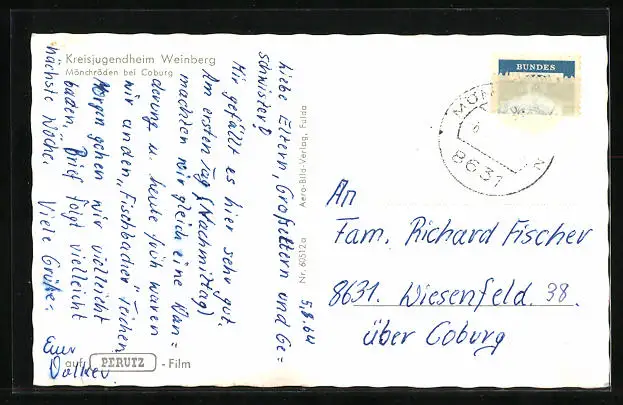 Kreisjugendheim Weinberg
Mönchröden bei Coburg
5.8.64
Liebe Eltern, Großeltern und Ge=
schwister!
Mir gefällt es hier sehr gut.
Am ersten Tag (Nachmittag)
machten wir gleich eine Wan=
derung u. heute früh waren
wir an den „Fischbacher" Teichen
Morgen gehen wir vielleicht
baden. Brief folgt vielleicht
nächste Woche. Viele Grüße.
Euer
Volker.
auf PERUTZ - Film
Nr. 60512a
Aero-Bild-Verlag, Fulda
BUNDES
8631
An
Fam. Richard Fischer
8631. Wiesenfeld. 38.
über Coburg